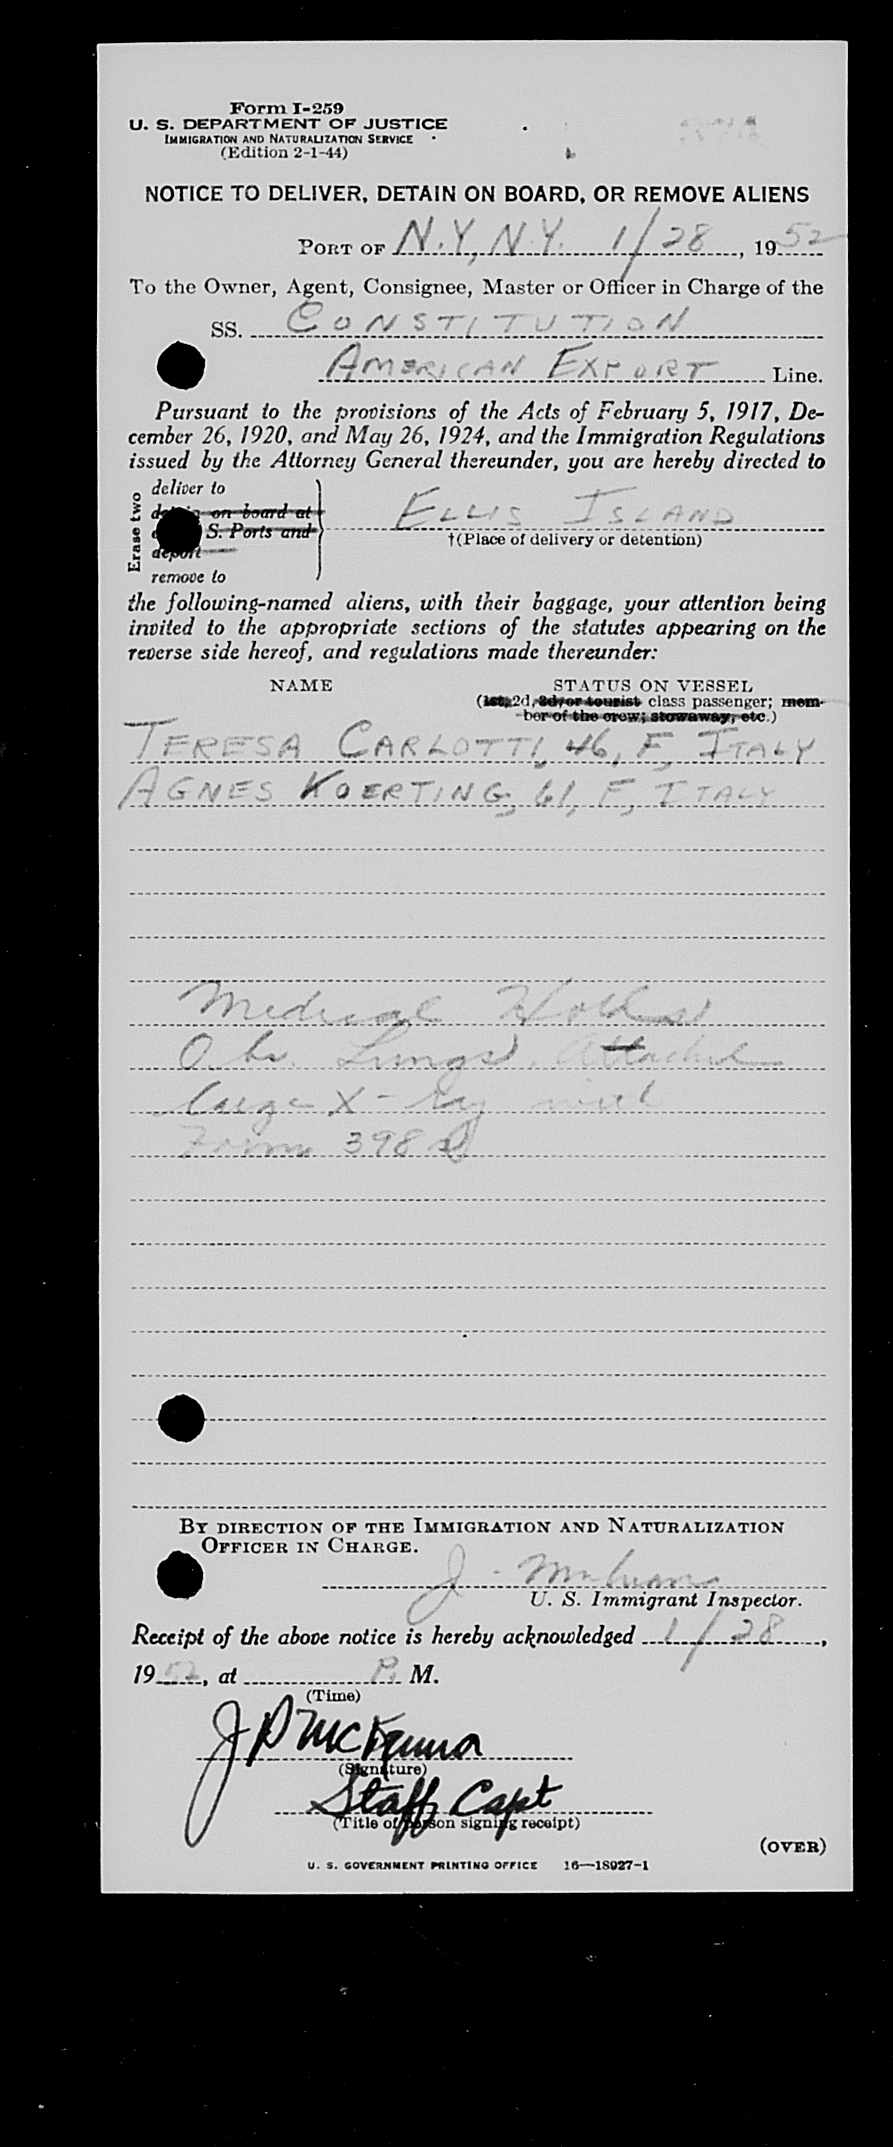 Form I-259
U. S. DEPARTMENT OF JUSTICE
IMMIGRATION AND NATURALIZATION SERVICE
(Edition 2-1-44)
NOTICE TO DELIVER, DETAIN ON BOARD, OR REMOVE ALIENS
PORT OF N.Y, N.Y. 1/28, 1952
To the Owner, Agent, Consignee, Master or Officer in Charge of the
SS. CONSTITUTION
AMERICAN EXPORT Line.
Pursuant to the provisions of the Acts of February 5, 1917, De-
cember 26, 1920, and May 26, 1924, and the Immigration Regulations
issued by the Attorney General thereunder, you are hereby directed to
Erase two
deliver to
on board at
S. Ports and
deport
remove to
ELLIS ISLAND
†(Place of delivery or detention)
the following-named aliens, with their baggage, your attention being
invited to the appropriate sections of the statutes appearing on the
reverse side hereof, and regulations made thereunder:
NAME STATUS ON VESSEL
(1st, 2d, 3d, or tourist class passenger; mem-
ber of the crew; stowaway, etc.)
TERESA CARLOTTI, 46, F, ITALY
AGNES KOERTING, 61, F, ITALY
Medical Holds
Obs. Lungs. Attached
large X-ray with
Form 398
BY DIRECTION OF THE IMMIGRATION AND NATURALIZATION
OFFICER IN CHARGE.
J.
U. S. Immigrant Inspector.
Receipt of the above notice is hereby acknowledged 1/28,
1952, at P. M.
(Time)
J P McKenna
(Signature)
Staff Capt
(Title of person signing receipt)
(OVER)
U. S. GOVERNMENT PRINTING OFFICE 16—18927-1